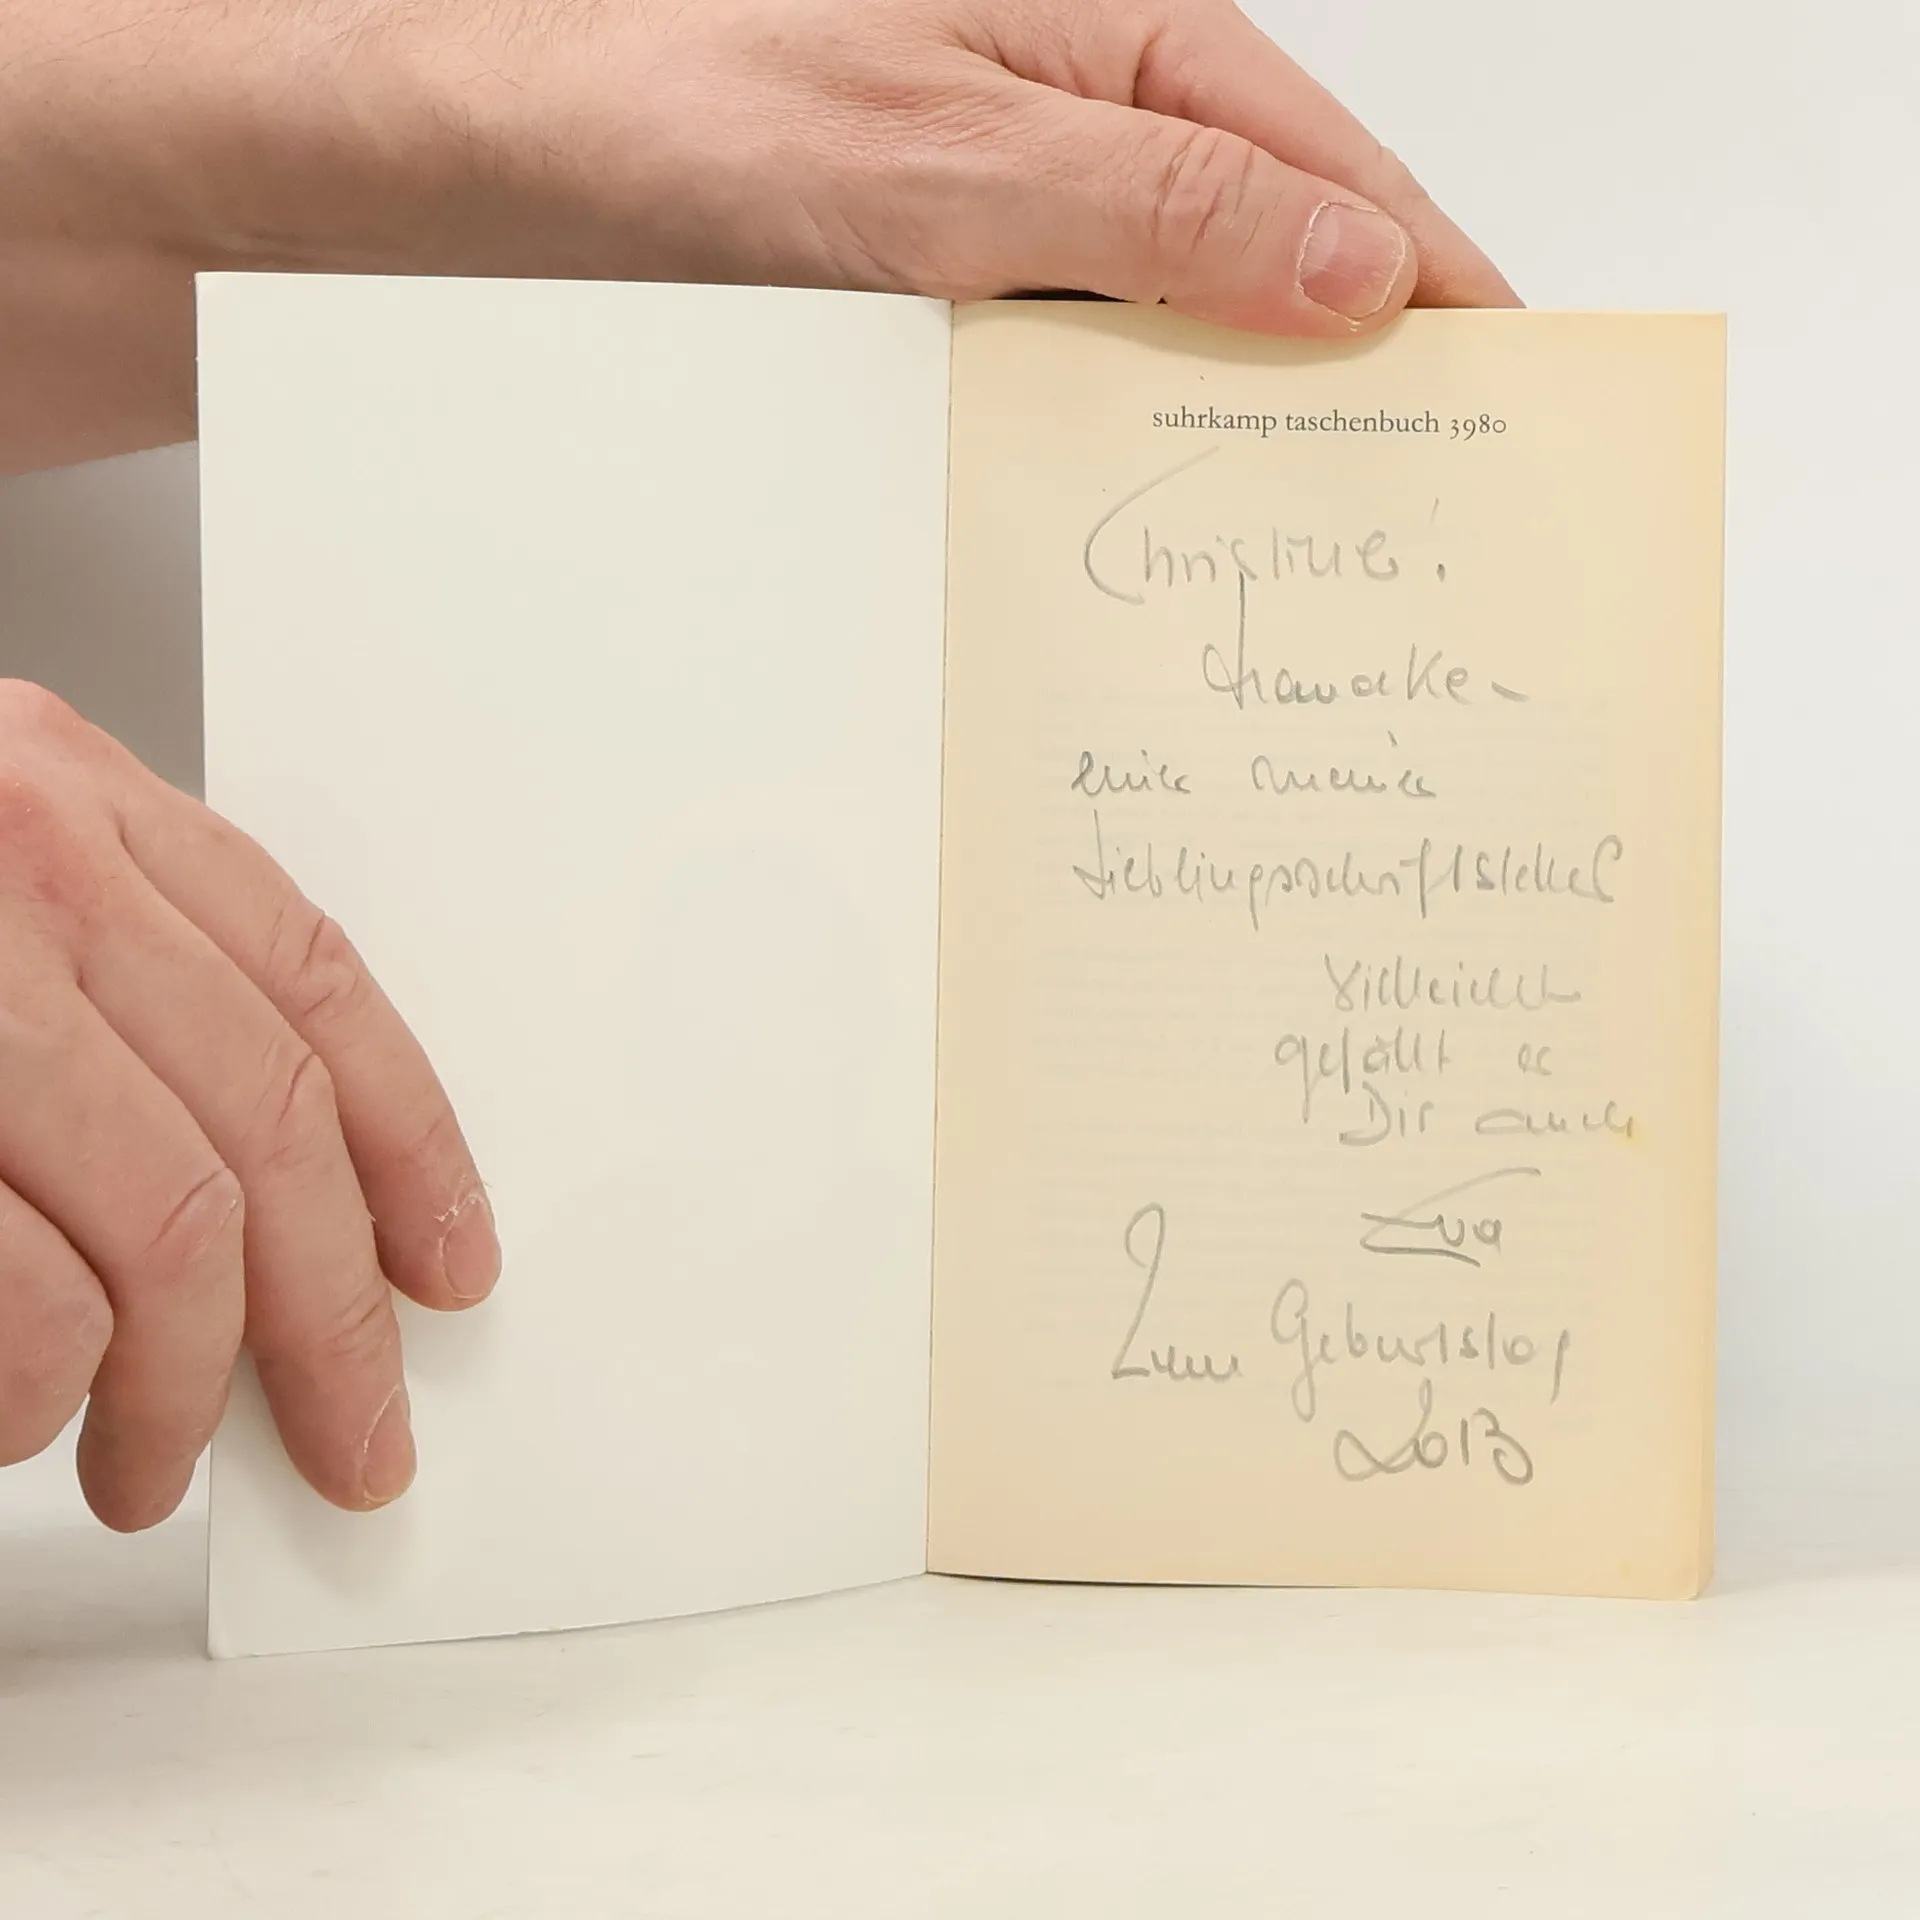 suhrkamp taschenbuch 3980
Christine!
eine meine
Lieblingsschriftsteller
Vielleicht
gefällt es
Dir auch
Eva
Zum Geburtstag
2013